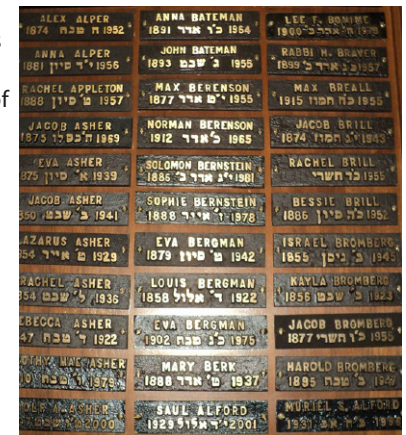 s
of
ALEX ALPER
1874 ח טבת 1952
ANNA ALPER
1881 י"ד סיון 1956
RACHEL APPLETON
1888 ט' סיון 1957
JACOB ASHER
1875 1969
EVA ASHER
1939 א' סיון
JACOB ASHER
1941 ב' שבט
LAZARUS ASHER
1929 ט' אייר
RACHEL ASHER
1936 ל' שבט
REBECCA ASHER
1922 ד' טבת
DOROTHY MAE ASHER
1979 ז' טבת
ASHER
2000
ANNA BATEMAN
1891 כ"ו אדר 1964
JOHN BATEMAN
1893 ג' שבט 1955
MAX BERENSON
1877 י"ט אדר 1955
NORMAN BERENSON
1912 כ' אדר 1965
SOLOMON BERNSTEIN
1886 י"ג אדר 1981
SOPHIE BERNSTEIN
1888 ז' אייר 1978
EVA BERGMAN
1879 ט' סיון 1942
LOUIS BERGMAN
1858 ד' אלול 1922
EVA BERGMAN
1902 כ"ג טבת 1975
MARY BERK
1888 ט' אדר 1937
SAUL ALFORD
1929 י"ד אלול 2001
LEE T. BONIME
1900 1979
RABBI H. BRAVER
1899 1957
MAX BREALL
1915 כ"ח תמוז 1955
JACOB BRILL
1874 י"ג תמוז 1945
RACHEL BRILL
כ"ח תשרי 1955
BESSIE BRILL
1886 כ"ח סיון 1952
ISRAEL BROMBERG
1855 ב' ניסן 1945
KAYLA BROMBERG
1856 ב' שבט 1923
JACOB BROMBERG
1877 כ"ו תשרי 1955
HAROLD BROMBERG
1895 ב' טבת
MURIEL S. ALFORD
1931